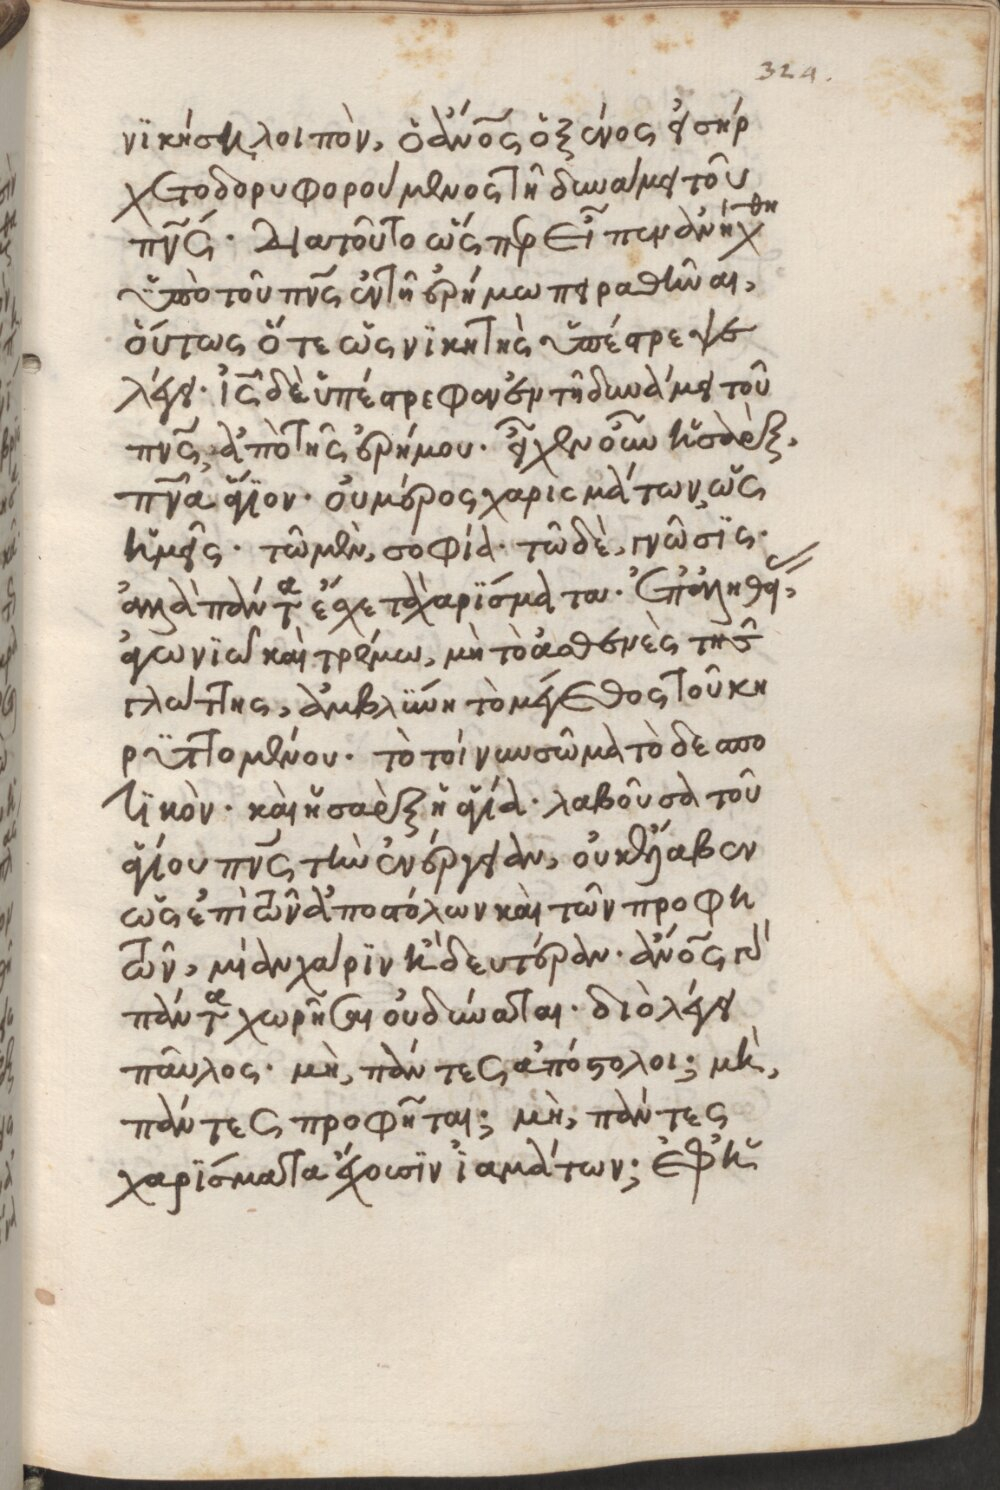 324.
νϊκήση λοιπὸν, ὁ ἀν̅ος ὁ ξένος εἰσήρ
χετο δορυφορούμενος τῆ δυνάμει τοῦ
πν̅ς. Διατοῦτο ὥςπερ εἶπεν ἀνήχθη
ὑπὸ τοῦ πν̅ς ἐν τῆ ἐρήμω πειρασθῆναι,
οὕτως ὅτε ὡς νϊκητὴς ὑπέστρεψε
λέγει. ἰς̅ δὲ ὑπέστρεφεν ἐν τῆ δυνάμει τοῦ
πν̅ς, ἀπὸ τῆς ἐρήμου. εἶχεν οὖν ἡ σὰρξ,
πν̅α ἅγϊον. οὐ μέρος χαρισμάτων, ὡς
ἡμεῖς. τῶ μὲν, σοφία. τῶ δὲ, γνῶσϊς.
ἀλλὰ πάντα εἶχε τὰ χαρΐσματα. ἐπὰν ἔλθη,
ἀγωνϊῶ καὶ τρέμω, μὴ τὸ ἀσθενὲς τῆς
γλώττης, ἀμβλύνη τὸ μέγεθος τοῦ κη
ρϋττομένου. τὸ τοίνυν σῶμα τὸ δεσπο
τϊκὸν. καὶ ἡ σὰρξ ἡ ἁγία. λαβοῦσα τοῦ
ἁγίου πν̅ς τὴν ἐνέργειαν, οὐκ ἔλαβεν
ὡς ἐπὶ τῶν ἀποστόλων καὶ τῶν προφη
τῶν, μίαν χάρϊν ἢ δευτέραν. ἀν̅ος γὰρ
πάντα χωρῆσαι οὐ δύναται. διὸ λέγει
παῦλος. μὴ, πάντες ἀπόστολοι; μὴ,
πάντες προφῆται; μὴ, πάντες
χαρΐσματα ἔχουσϊν ἰαμάτων; ἐφ ἡ